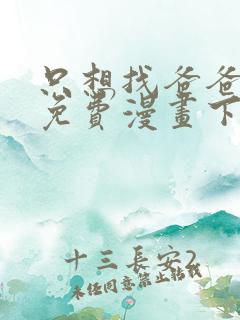 只想找爸爸
免費漫畫下
十三長安2
未經同意禁止轉載